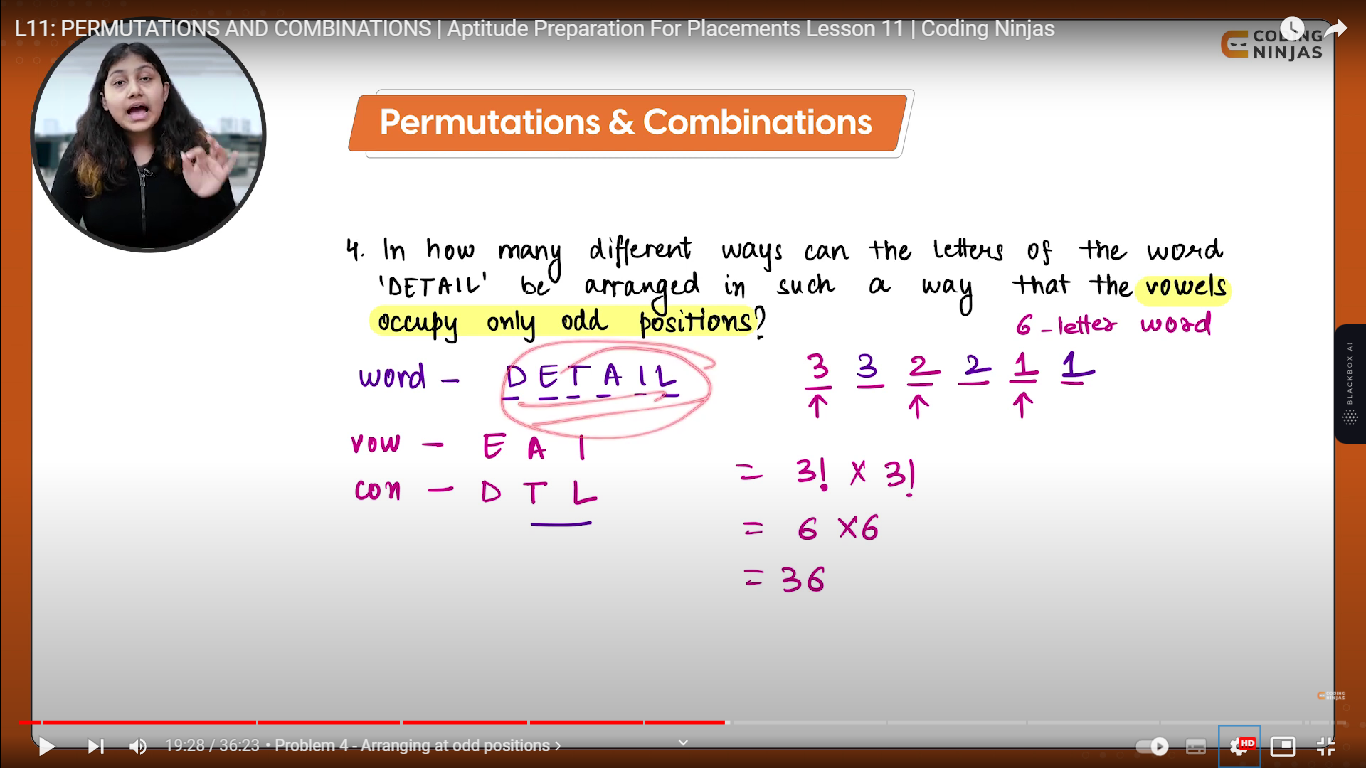 L11: PERMUTATIONS AND COMBINATIONS | Aptitude Preparation For Placements Lesson 11 | Coding Ninjas
CODING
NINJAS
Permutations & Combinations
4. In how many different ways can the letters of the word
'DETAIL' be arranged in such a way that the vowels
occupy only odd positions?
6-letter word
word - D E T A I L
3 3 2 2 1 1
↑ ↑ ↑
vow - E A I
con - D T L
= 3! × 3!
= 6 × 6
= 36
BLACKBOX AI
CODING
NINJAS
19:28 / 36:23 • Problem 4 - Arranging at odd positions >
HD